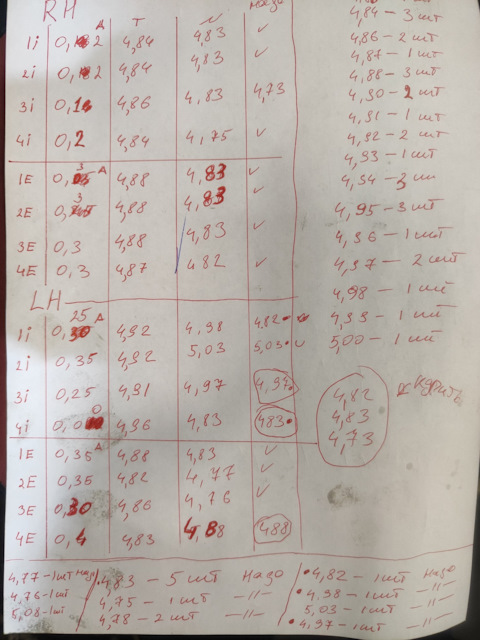 RH А Т надо
1i 0,2 4,84 4,83 ✓
2i 0,2 4,84 4,83 ✓
3i 0,1 4,86 4,83 4,73
4i 0,2 4,84 4,75 ✓
1E 0,3 А 4,88 4,83 ✓
2E 0,3 4,88 4,83 ✓
3E 0,3 4,88 4,83 ✓
4E 0,3 4,87 4,82 ✓
LH
1i 0,25 А 4,92 4,98 4,82
2i 0,35 4,92 5,03 5,03
3i 0,25 4,91 4,97 4,97
4i 0,0 4,96 4,83 483
1E 0,35 А 4,88 4,83 ✓
2E 0,35 4,82 4,77 ✓
3E 0,30 4,86 4,76 ✓
4E 0,4 4,83 4,88 488
4,84 – 3 шт
4,86 – 2 шт
4,87 – 1 шт
4,88 – 3 шт
4,90 – 2 шт
4,91 – 1 шт
4,92 – 2 шт
4,93 – 1 шт
4,94 – 3 шт
4,95 – 3 шт
4,96 – 1 шт
4,97 – 2 шт
4,98 – 1 шт
4,99 – 1 шт
5,00 – 1 шт
4,82
4,83
4,73
4,77 – 1 шт надо
4,76 – 1 шт
5,08 – 1 шт
4,83 – 5 шт надо
4,75 – 1 шт –//–
4,78 – 2 шт –//–
4,82 – 1 шт надо
4,98 – 1 шт –//–
5,03 – 1 шт –//–
4,97 – 1 шт –//–